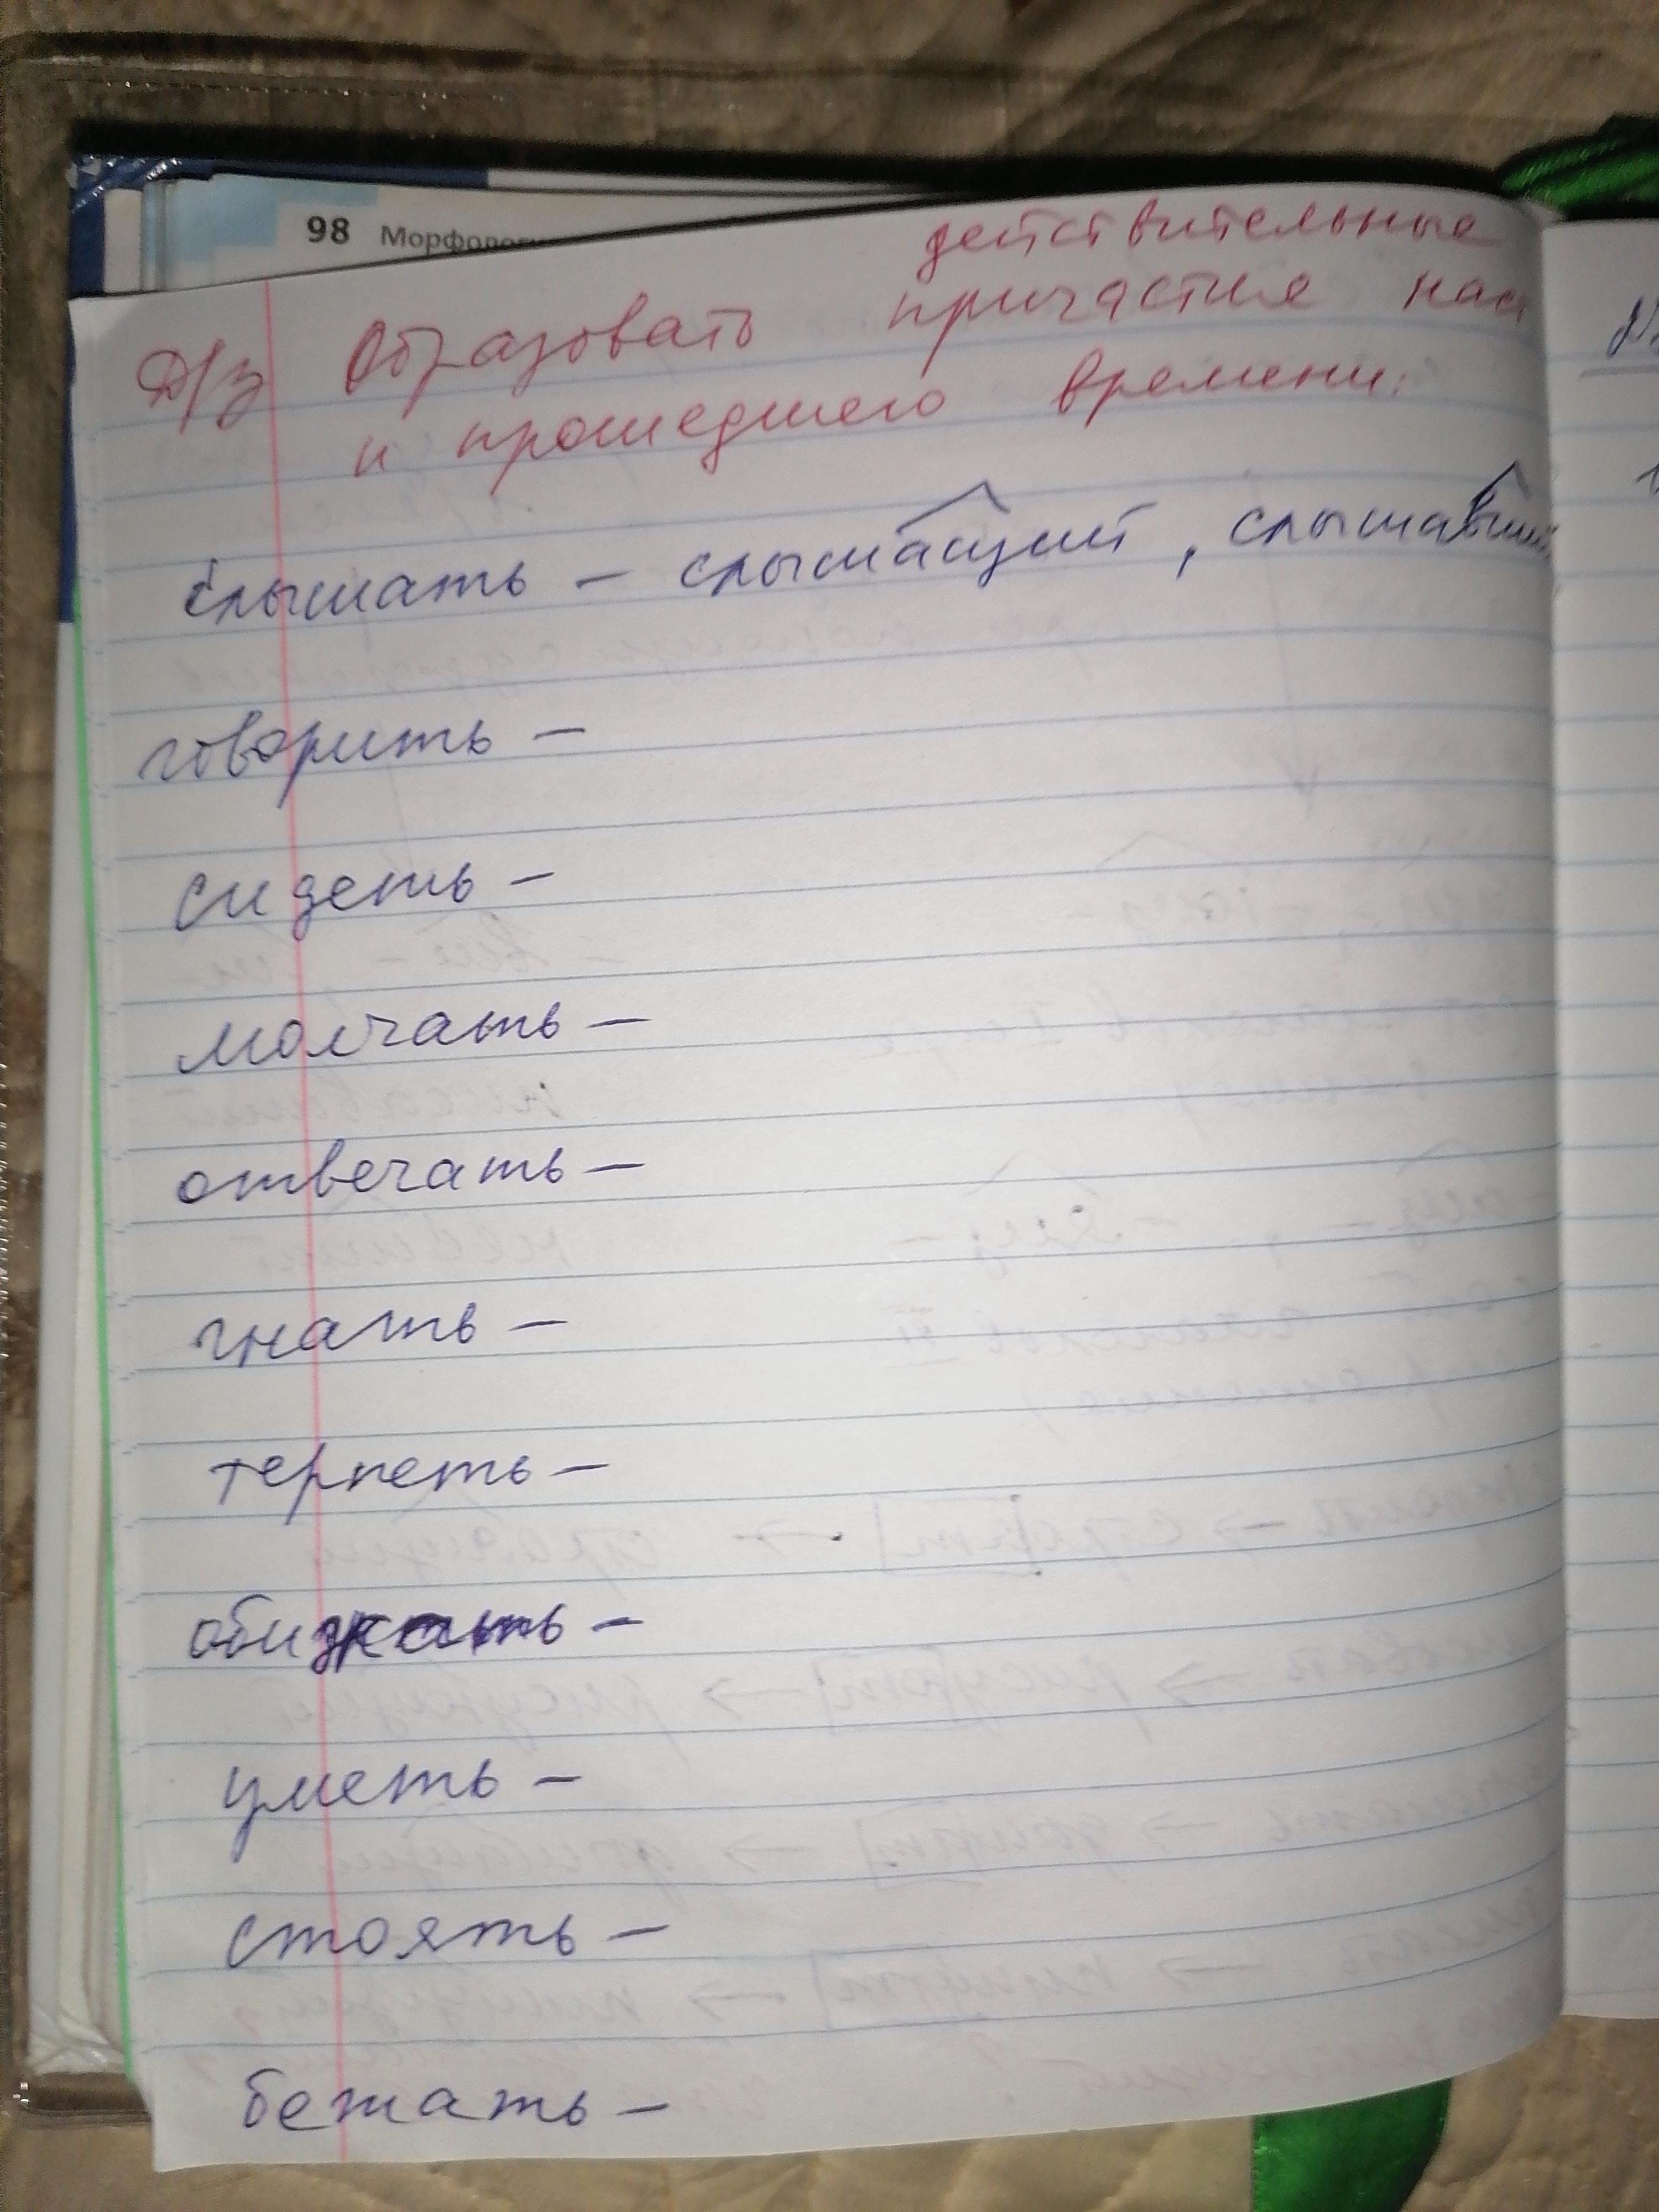 98 Морфологи
действительные
Д/з Образовать причастия наст
и прошедшего времени:
слышать – слышащий, слышавший
говорить –
сидеть –
молчать –
отвечать –
гнать –
терпеть –
обижать –
уметь –
стоять –
бежать –